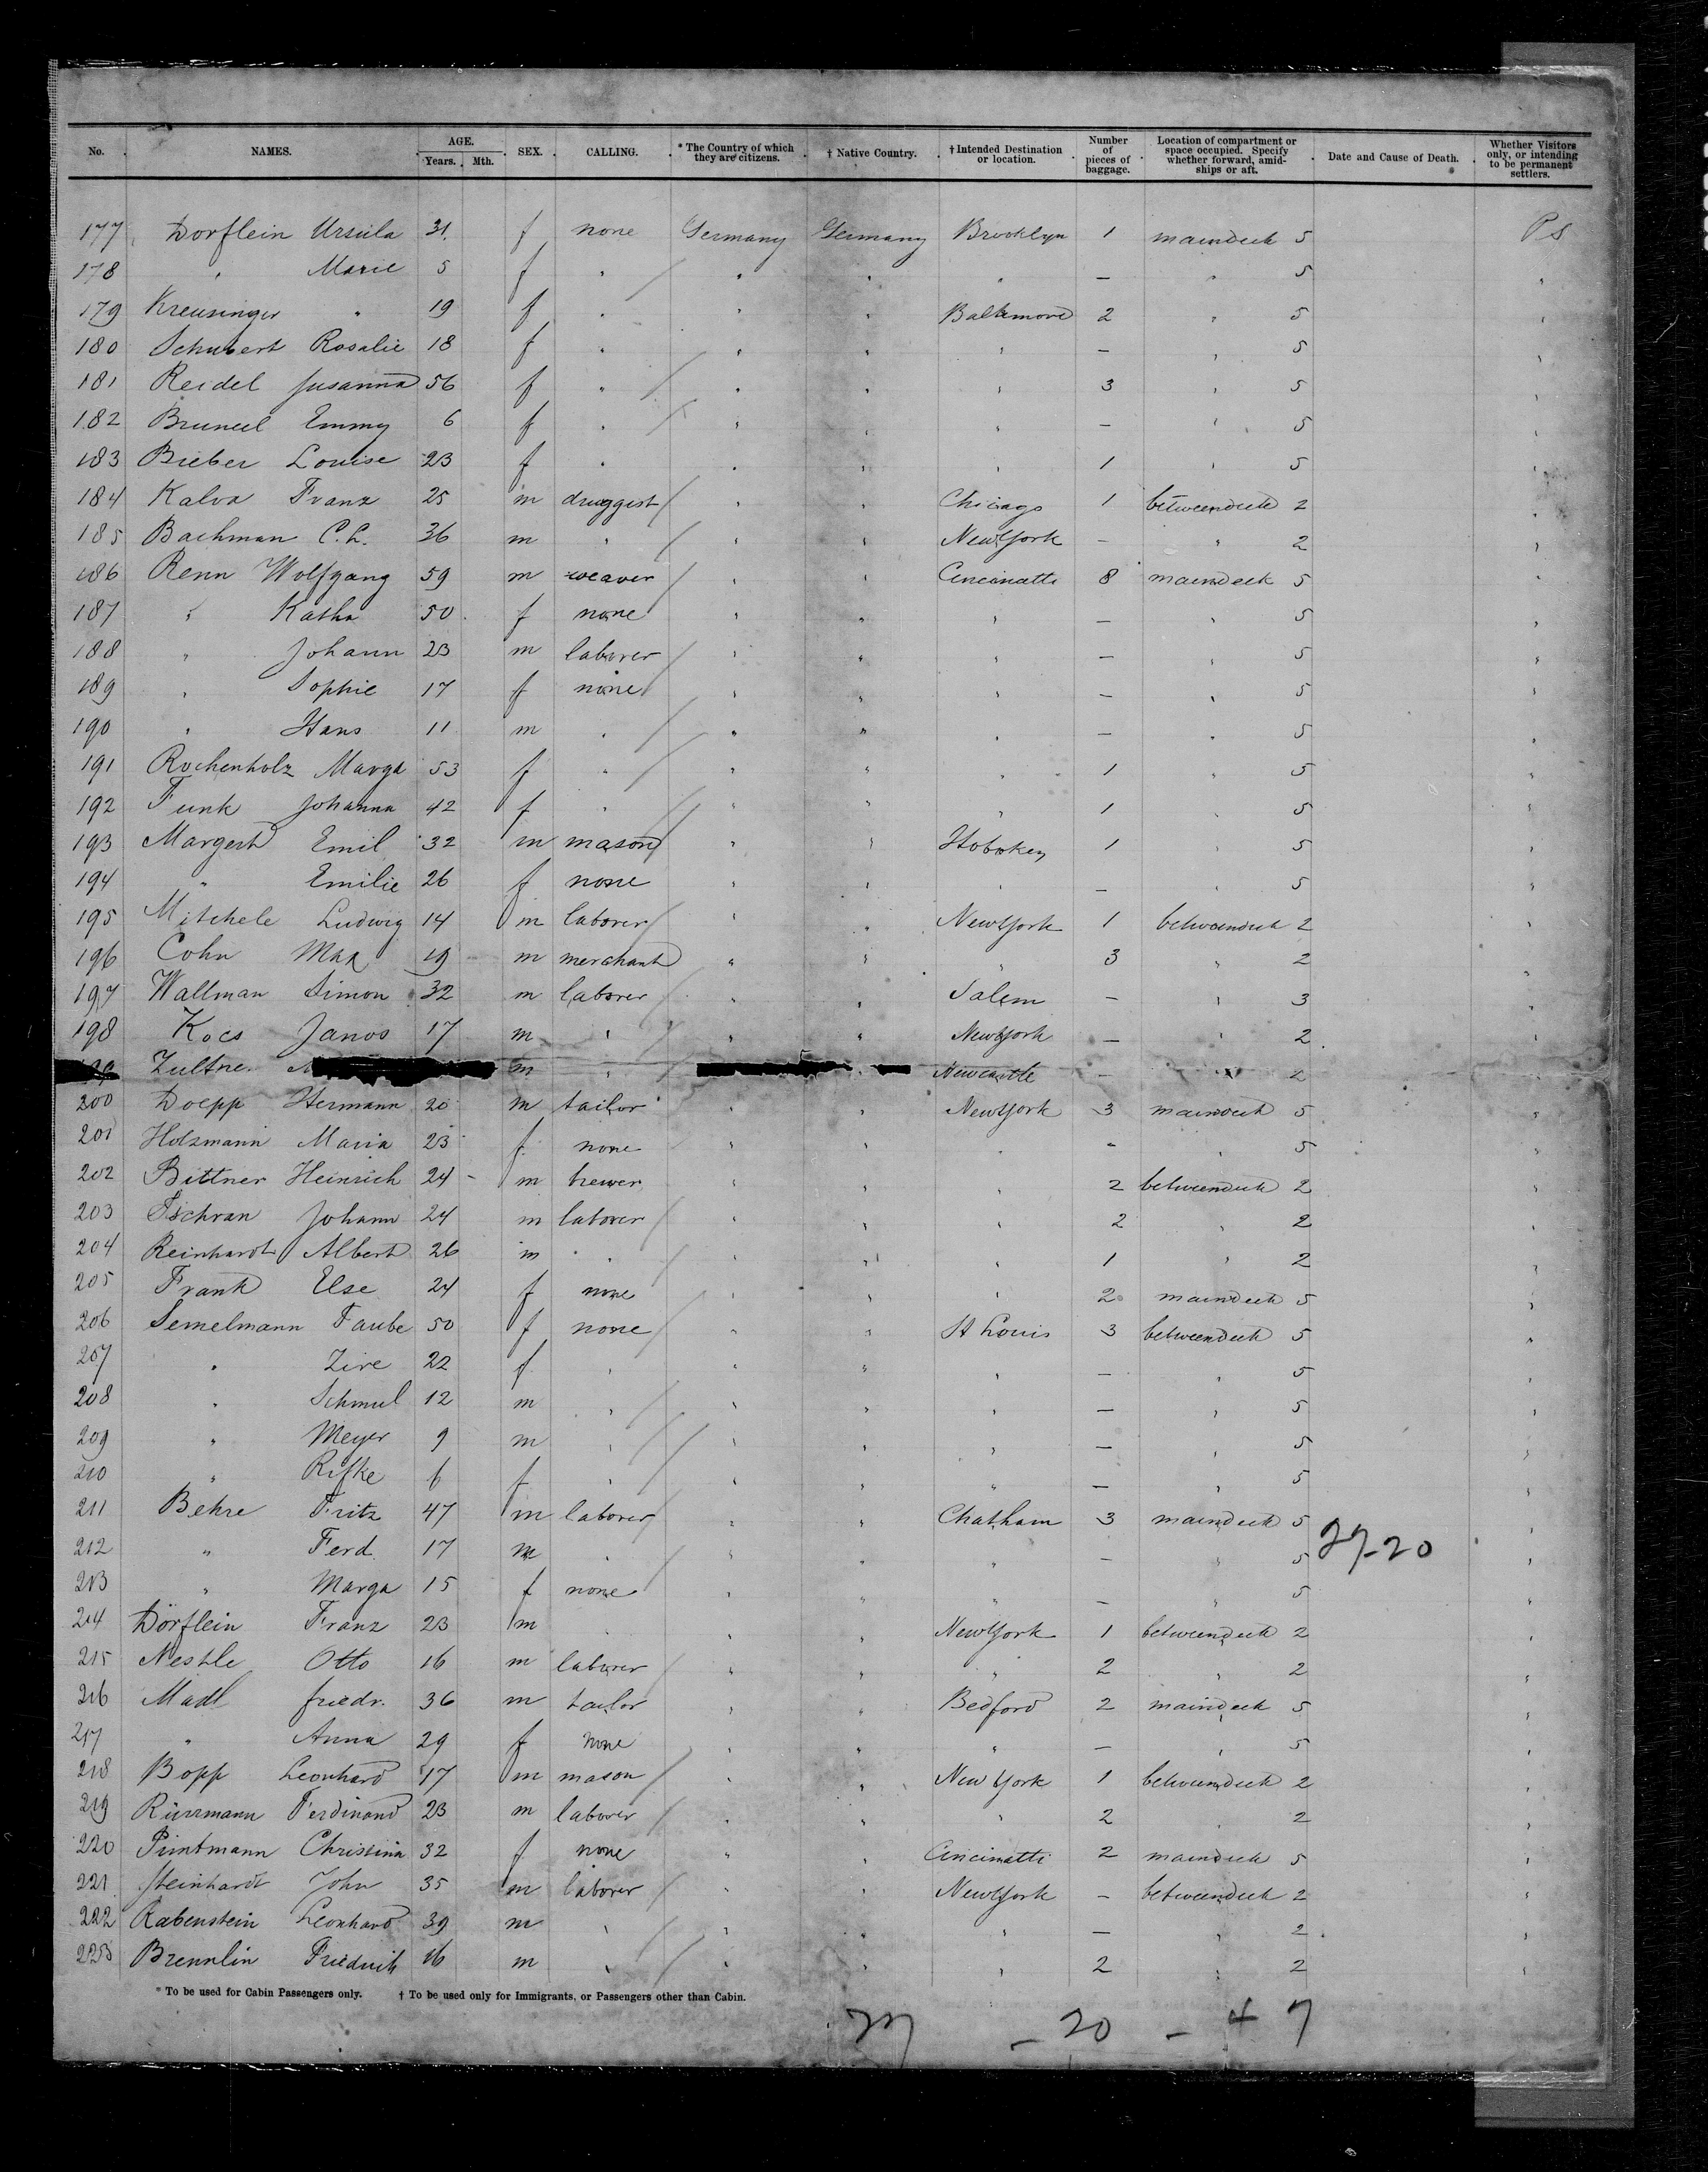 No. NAMES. AGE. Years. Mth. SEX. CALLING. * The Country of which they are citizens. † Native Country. † Intended Destination or location. Number of pieces of baggage. Location of compartment or space occupied. Specify whether forward, amidships or aft. Date and Cause of Death. Whether Visitors only, or intending to be permanent settlers.
177 Dorflein Ursula 31 f none Germany Germany Brooklyn 1 maindeck 5 Ps
178 " Marie 5 f " " " " — " 5 "
179 Kreusinger " 19 f " " " Baltimore 2 " 5 "
180 Schubert Rosalie 18 f " " " " — " 5 "
181 Reidel Susanna 56 f " " " " 3 " 5 "
182 Emmy 6 f " " " " — " 5 "
183 Bieber Louise 23 f " " " " 1 " 5 "
184 Kalva Franz 25 m druggist " " Chicago 1 betweendeck 2 "
185 Bachman C.L. 36 m " " " NewYork — " 2 "
186 Renn Wolfgang 59 m weaver " " Cincinatti 8 maindeck 5 "
187 " Katha 50 f none " " " — " 5 "
188 " Johann 23 m laborer " " " — " 5 "
189 " Sophie 17 f none " " " — " 5 "
190 " Hans 11 m " " " " — " 5 "
191 Rochenholz Marga 53 f " " " " 1 " 5 "
192 Funk Johanna 42 f " " " " 1 " 5 "
193 Margert Emil 32 m mason " " Hoboken 1 " 5 "
194 " Emilie 26 f none " " " — " 5 "
195 Mitchele Ludwig 14 m laborer " " NewYork 1 betweendeck 2 "
196 Cohn Max 19 m merchant " " " 3 " 2 "
197 Wallman Simon 32 m laborer " " Salem — " 3 "
198 Kocs Janos 17 m " " " NewYork — " 2 "
Zultne m " " Newcastle — " 2
200 Doepp Hermann 20 m tailor " " NewYork 3 maindeck 5 "
201 Holzmann Maria 23 f none " " " - " 5 "
202 Bittner Heinrich 24 m brewer " " " 2 betweendeck 2 "
203 Tschran Johann 24 m laborer " " " 2 " 2 "
204 Reinhardt Albert 26 m " " " " 1 " 2 "
205 Frank Else 24 f none " " " 2 maindeck 5 "
206 Semelmann Taube 50 f none " " St Louis 3 betweendeck 5 "
207 " Zire 22 f " " " " — " 5 "
208 " Schmul 12 m " " " " — " 5 "
209 " Meyer 9 m " " " " — " 5 "
210 " Rifke 6 f " " " " — " 5 "
211 Behre Fritz 47 m laborer " " Chatham 3 maindeck 5 "
212 " Ferd. 17 m " " " " — " 5 27-20 "
213 " Marga 15 f none " " " — " 5 "
214 Dörflein Franz 23 m " " " NewYork 1 betweendeck 2 "
215 Nestle Otto 16 m laborer " " " 2 " 2 "
216 Madl friedr. 36 m tailor " " Bedford 2 maindeck 5 "
217 " Anna 29 f none " " " — " 5 "
218 Bopp Leonhard 17 m mason " " New York 1 betweendeck 2 "
219 Rürrmann Ferdinand 23 m laborer " " " 2 " 2 "
220 Püntmann Christina 32 f none " " Cincinatti 2 maindeck 5 "
221 Steinhardt John 35 m laborer " " NewYork - betweendeck 2 "
222 Rabenstein Leonhard 39 m " " " " — " 2 "
223 Brennlin Friedrich 16 m " " " " 2 " 2 "
* To be used for Cabin Passengers only. † To be used only for Immigrants, or Passengers other than Cabin.
27 - 20 - 47